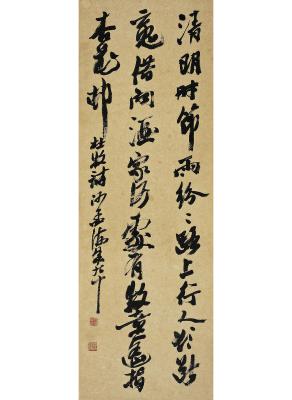 清明時節雨紛〻路上行人欲斷
魂借問酒家何處有牧童遥指
杏花村 杜牧詩 沙孟海年九十